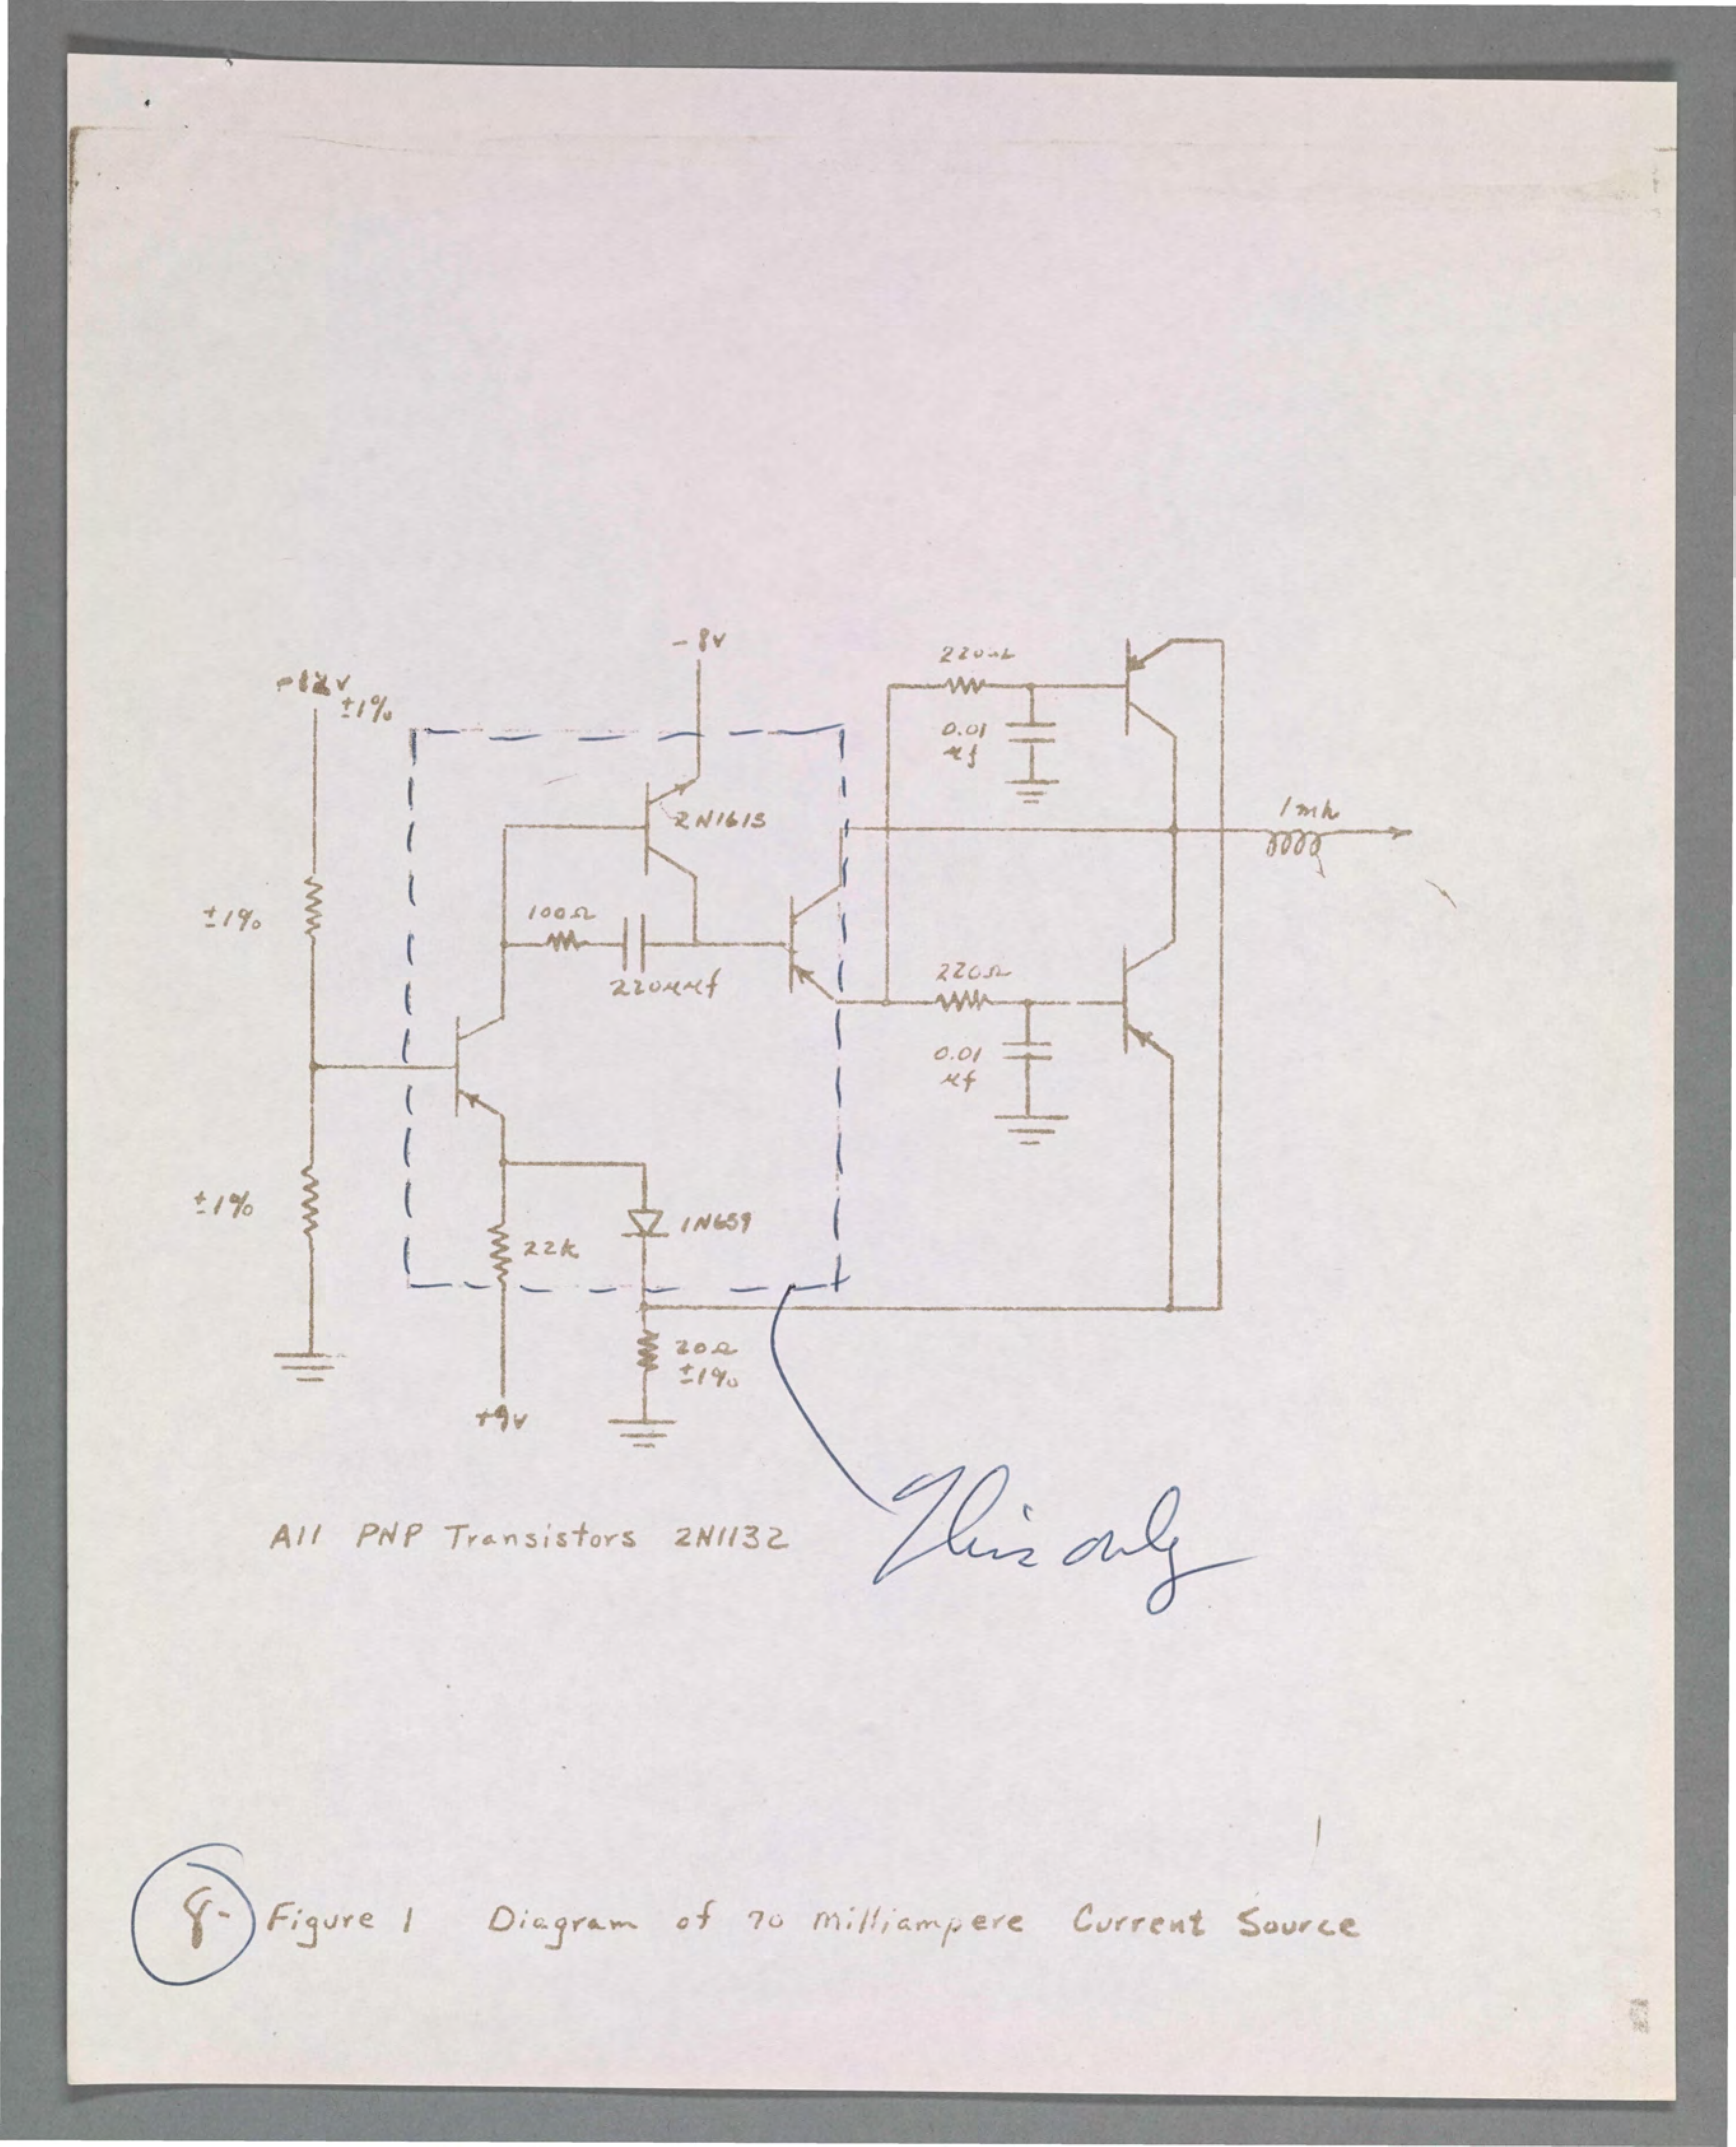 - 8v
-12v
±1%
220Ω
0.01
μf
2N1613
1mh
±1%
100Ω
220μμf
220Ω
0.01
μf
±1%
1N659
22k
20Ω
±1%
+9v
All PNP Transistors 2N1132
This only
8- Figure 1 Diagram of 70 Milliampere Current Source